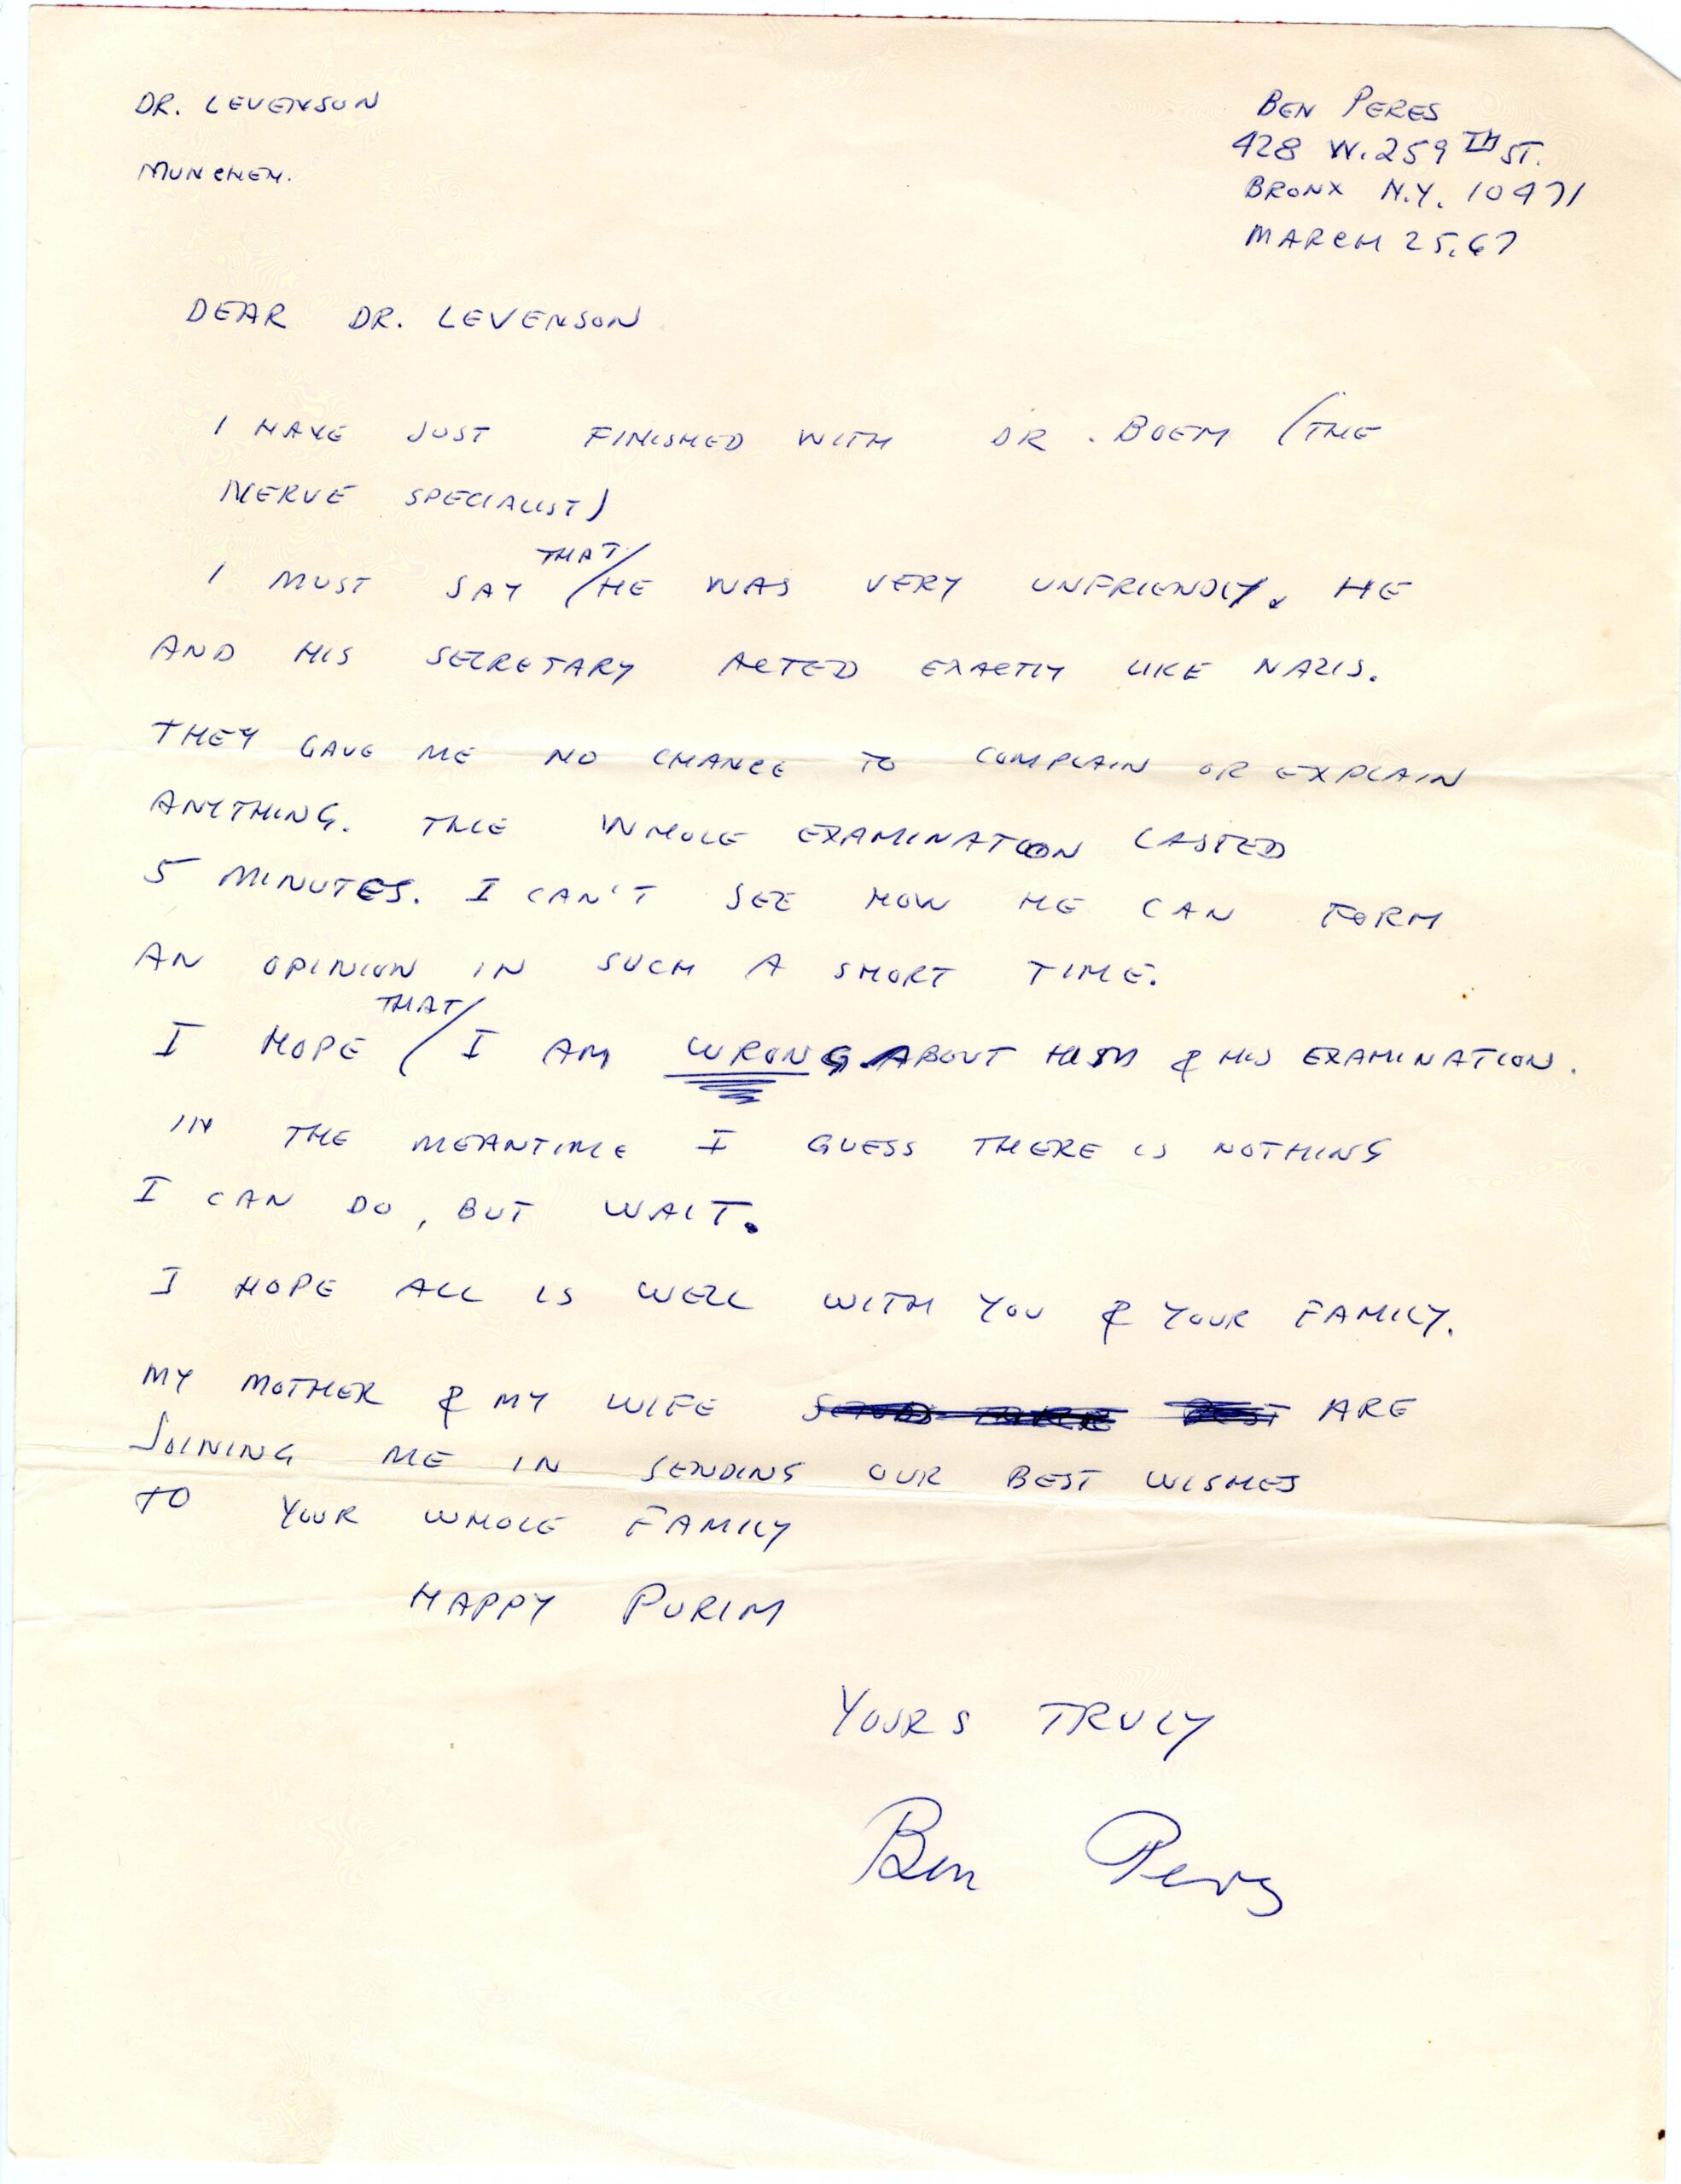 DR. LEVENSON
MUNCHEN.
BEN PERES
428 W. 259TH ST.
BRONX N.Y. 10471
MARCH 25.67
DEAR DR. LEVENSON
I HAVE JUST FINISHED WITH DR. BOEM (THE
NERVE SPECIALIST)
I MUST SAY THAT HE WAS VERY UNFRIENDLY. HE
AND HIS SECRETARY ACTED EXACTLY LIKE NAZIS.
THEY GAVE ME NO CHANCE TO COMPLAIN OR EXPLAIN
ANYTHING. THE WHOLE EXAMINATION LASTED
5 MINUTES. I CAN'T SEE HOW HE CAN FORM
AN OPINION IN SUCH A SHORT TIME.
I HOPE THAT I AM WRONG ABOUT HIM & HIS EXAMINATION.
IN THE MEANTIME I GUESS THERE IS NOTHING
I CAN DO, BUT WAIT.
I HOPE ALL IS WELL WITH YOU & YOUR FAMILY.
MY MOTHER & MY WIFE ARE
JOINING ME IN SENDING OUR BEST WISHES
TO YOUR WHOLE FAMILY
HAPPY PURIM
YOURS TRULY
Ben Peres